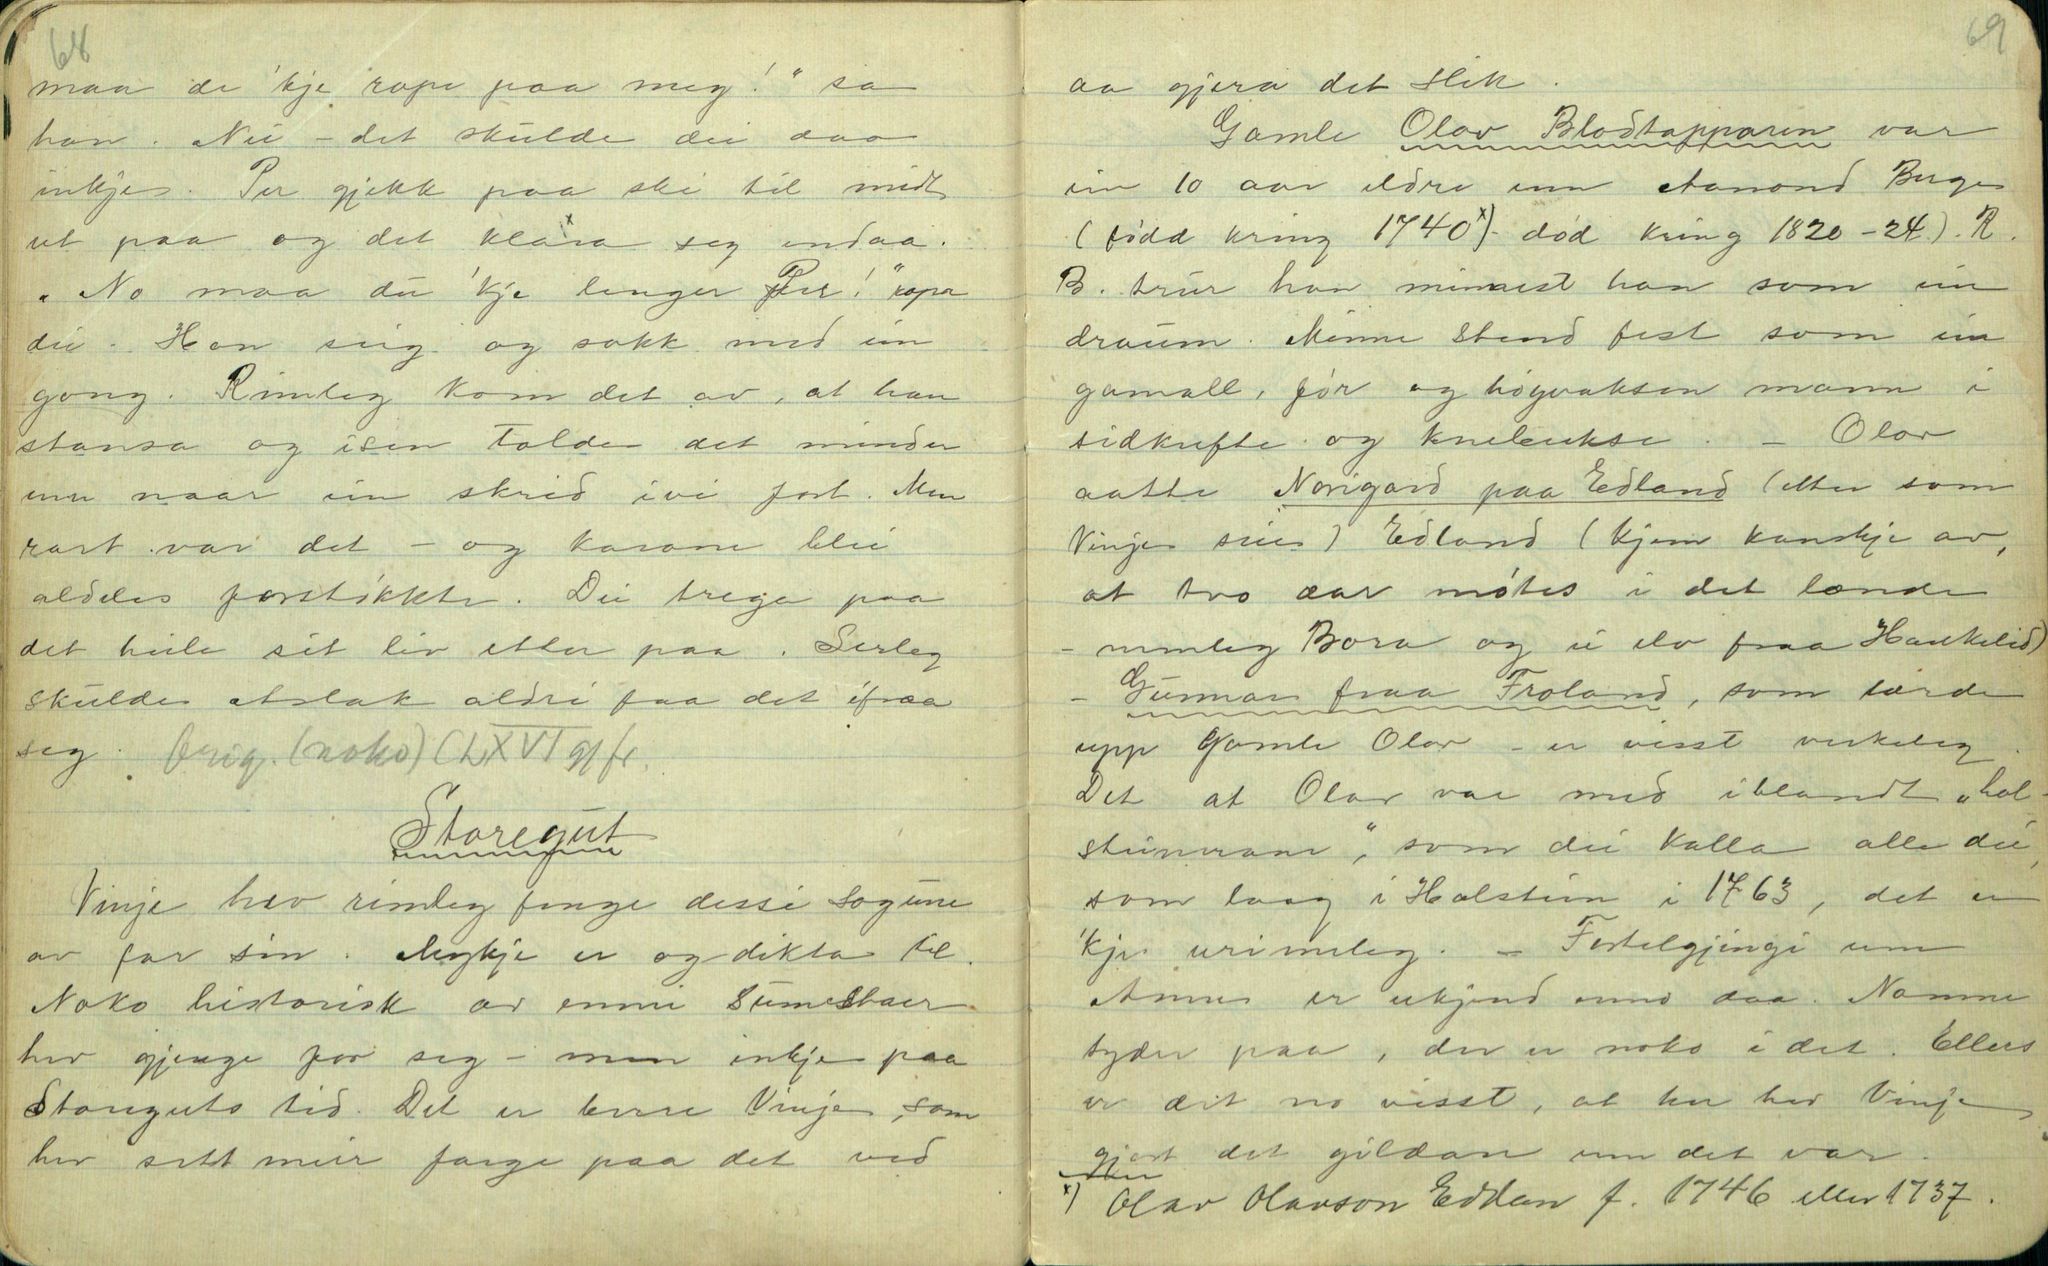 68
maa de 'kje rope paa meg!" sa
han. Nei - det skulde dei daa
inkje. Per gjekk paa ski til midt
ut paa og det klara seg endaa.
"No maa du 'kje lenger Per!" ropa
dei. Han seig og sokk med ein
gong. Rimleg kom det av, at han
stansa og isen tolde det mindre
enn naar ein skrid ivi fort. Men
rart var det - og karane blei
aldeles forstøkkte. Dei trega paa
det heile sit liv etter paa. Serleg
skulde Aslak aldri faa det ifraa
seg. Orig. (noko) (LXVI gj fr.
Storegut
Vinje hev rimleg fenge desse sogune
av far sin. Mykje er og dikta til.
Noko historisk av emni sumestaer
hev gjenge for seg - men inkje paa
Storeguts tid. Det er berre Vinje, som
hev sett meir farge paa det ved
69
aa gjera det slik.
Gamle Olav Blodtapparen var
ein 10 aar eldre enn Aamond Berge
(fødd kring 1740 x) død kring 1820-24). R.
B. trur han minnest han som ein
draum. Minne stend fest som ein
gamall, før og høgvaksen mann i
sidkufte og knebukse. - Olav
aatte Norigard paa Edland (etter som
Vinje seie) Edland (kjem kanskje av,
at tvo aar møtes i det lænde
- nemleg Bora og ei elv fraa Haukelid)
- Gunnar fraa Froland, som lærde
upp Gamle Olav - er visst verkeleg.
Det at Olav var med iblandt "hol-
steinerane", som dei kalla alle dei,
som laag i Holstein i 1763, det er
'kje urimeleg. - Fortelgjingi um
Anne er ukjend enno daa. Namne
tyder paa, der er noko i det. Ellers
er det no visst, at her hev Vinje
gjort det gildare enn det var.
x) Olav Olavson Edland f. 1746 eller 1737.